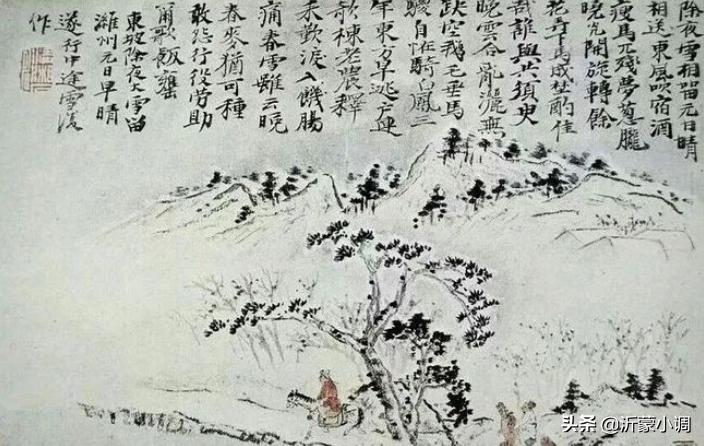 除夜雪相留元日晴
相送東風吹宿酒
瘦馬兀殘夢蔥朧
曉光開旋轉餘
花弄下馬成埜酌佳
哉誰與共須臾
晚雲合亂灑無
缺空鵝毛垂馬
騣自怪騎白鳳三
年東方旱逃戶連
欹棟老農釋
耒歎淚入饑腸
痛春雪雖云晚
春麥猶可種
敢怨行役勞助
爾歌飯甕
東坡除夜大雪留
濰州元日早晴
遂行中途雪復
作
头条 @沂蒙小调